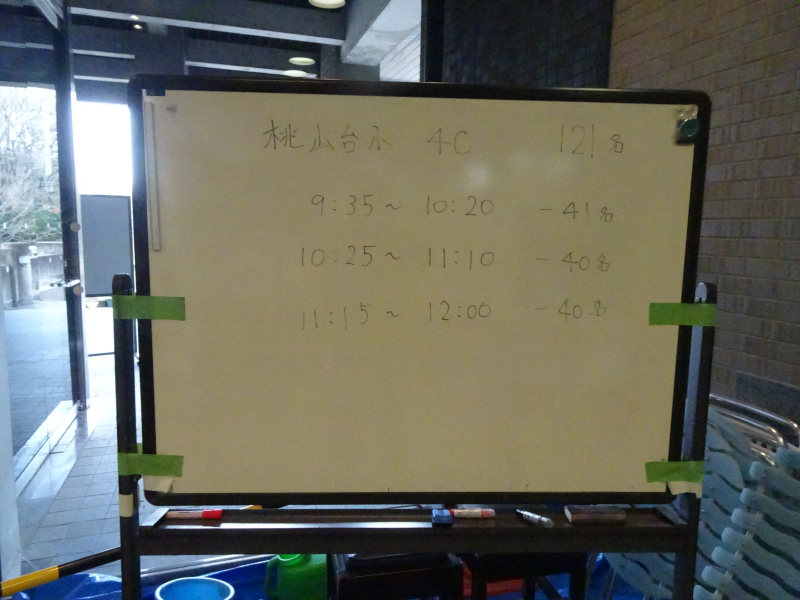 桃山台小 4C 121名
9:35~ 10:20 -41名
10:25~ 11:10 -40名
11:15~ 12:00 -40名